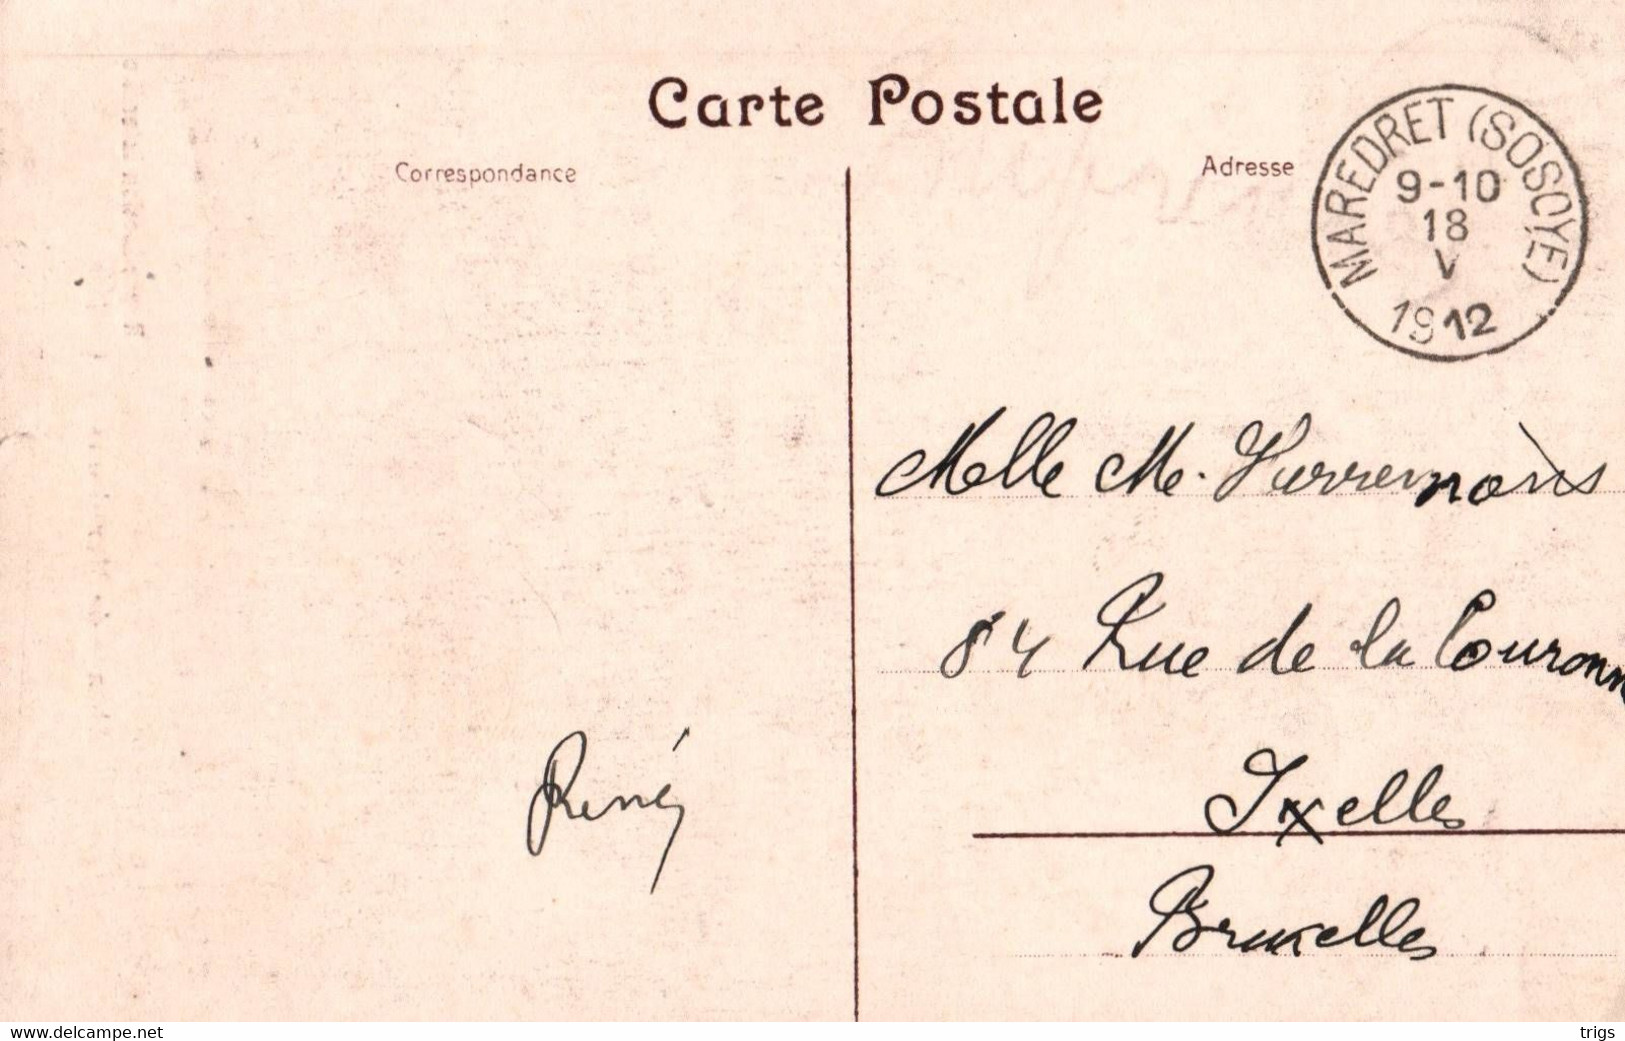 Carte Postale
Correspondance
Adresse
MAREDRET (SOSOYE)
9-10
18
V
1912
Melle M.
84 Rue de la Couronn
Ixelles
Bruxelles
René
www.delcampe.net
trigs